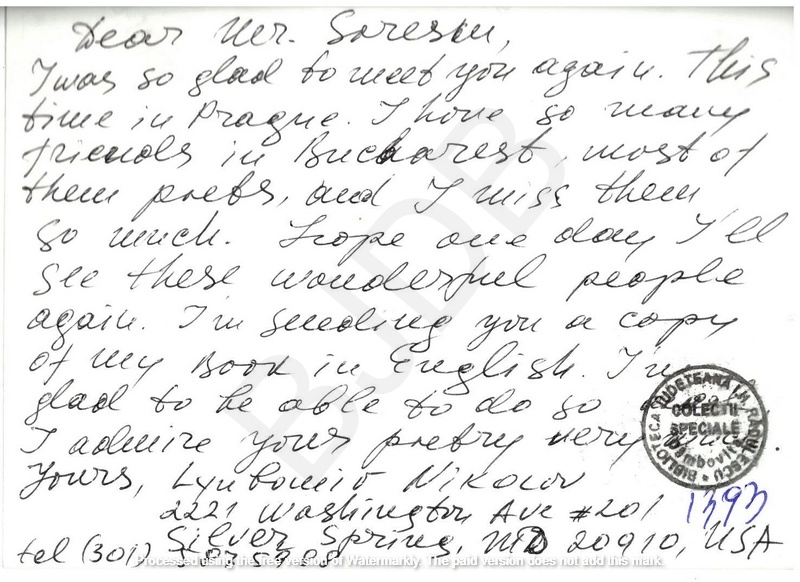 Dear Mr. Sorescu,
I was so glad to meet you again. This
time in Prague. I have so many
friends in Bucharest, most of
them poets, and I miss them
so much. Hope one day I'll
see these wonderful people
again. I'm sending you a copy
of my Book in English. I'm
glad to be able to do so
I admire your poetry very
Yours, Lyubomir Nikolov
2221 Washington Ave #201
Silver Spring, MD 20910, USA
tel (301)
BIBLIOTECA JUDETEANA I.H. RADULESCU
COLECTII
SPECIALE
Dambovita
1393
BJDB
Processed using the free version of Watermarkly. The paid version does not add this mark.